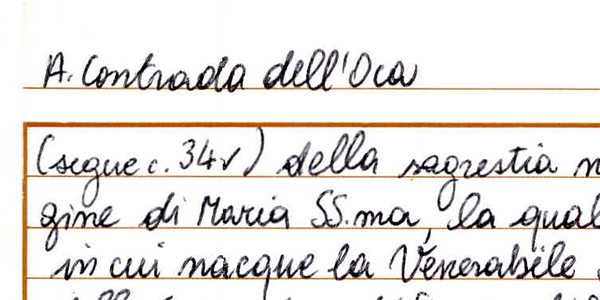 A. Contrada dell'Oca
(segue c. 34v) della sagrestia
gine di Maria SS.ma, la qual
in cui nacque la Venerabile